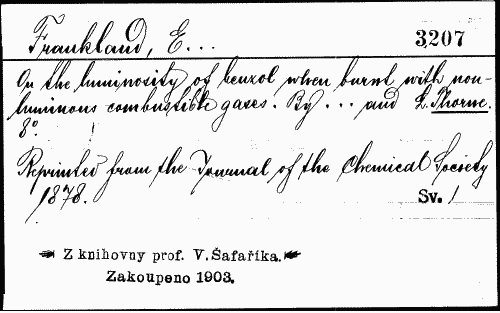 Frankland, E... 3207
On the luminosity of benzol when burnt with non-
luminous combustible gases. By ... and L. Thorne.
8°.
Reprinted from the Journal of the Chemical Society
1878. Sv. 1
Z knihovny prof. V. Šafaříka.
Zakoupeno 1903.